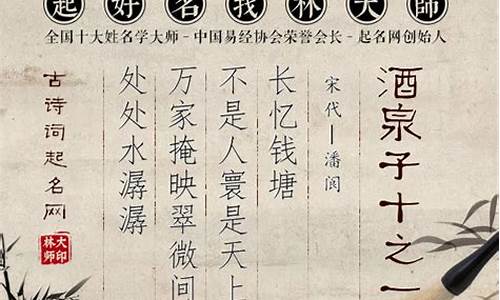 起好名找林大師
全国十大姓名学大师 - 中国易经协会荣誉会长 - 起名网创始人
酒泉子十之一
宋代—潘阆
长忆钱塘
不是人寰是天上
万家掩映翠微间
处处水潺潺
古诗词起名网
林大
师印